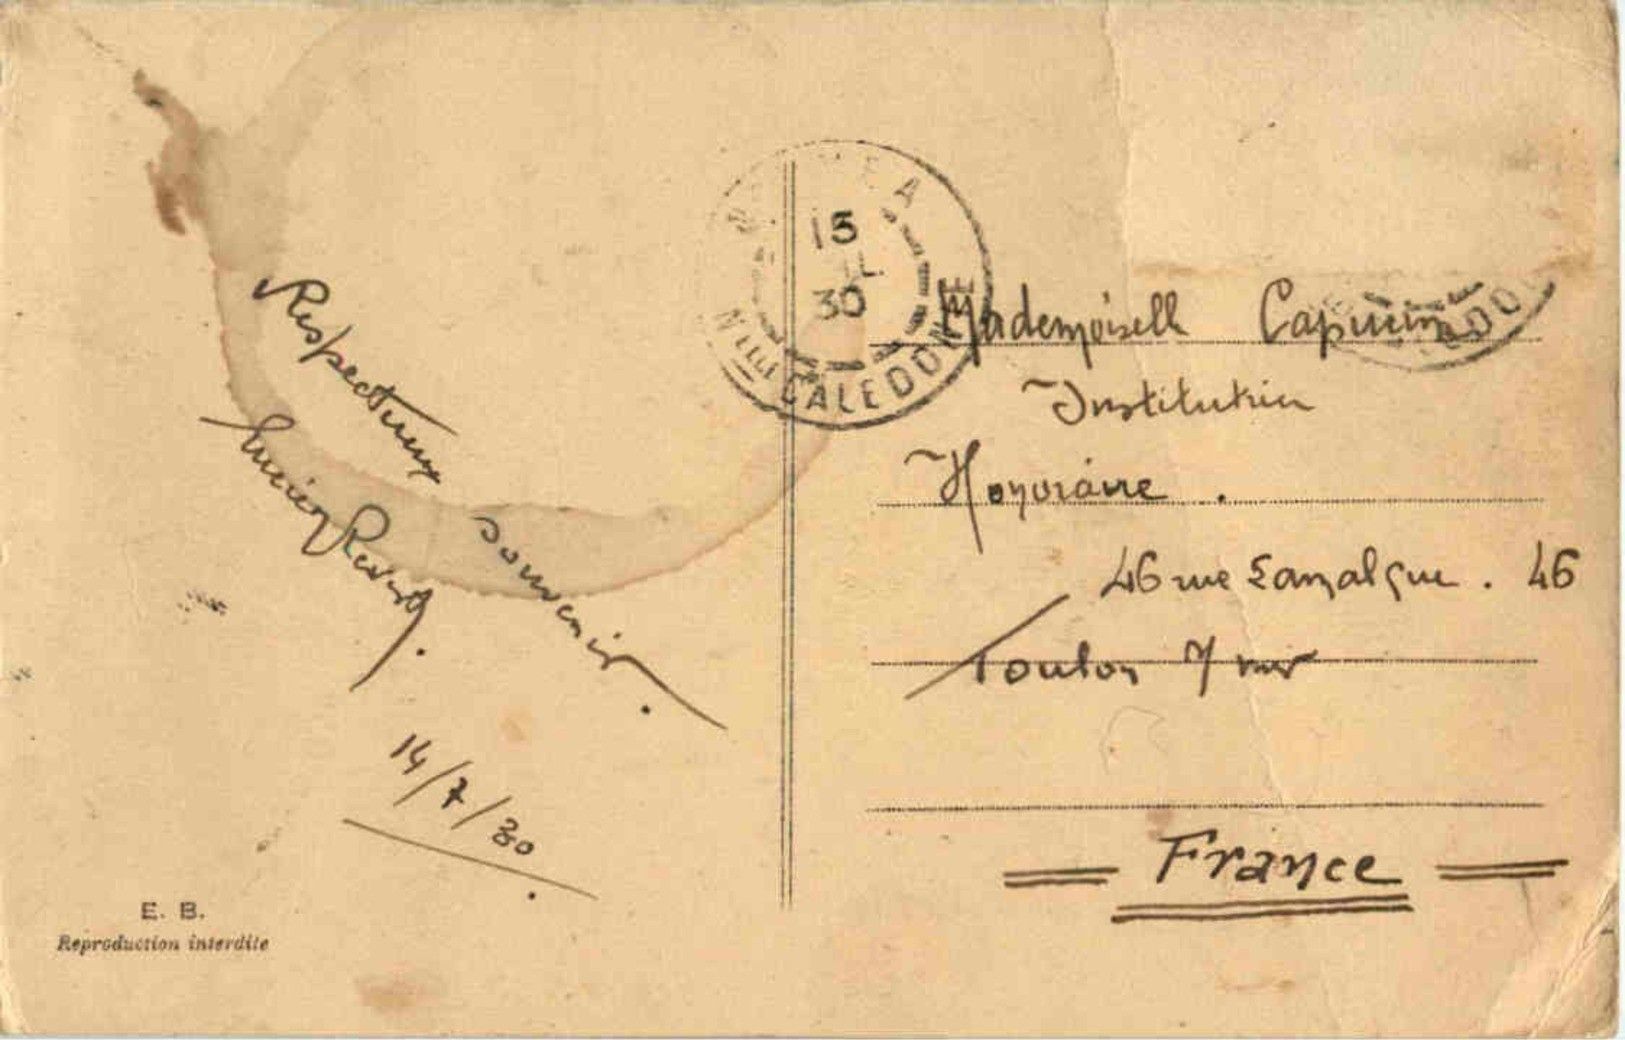 Respectueux
souvenir.
Lucien
14/7/30.
E. B.
Reproduction interdite
NOUMEA
15
30
Nlle CALEDONIE
Mademoiselle
Institutrice
Honoraire.
46 rue Lamalgue. 46
Toulon
France